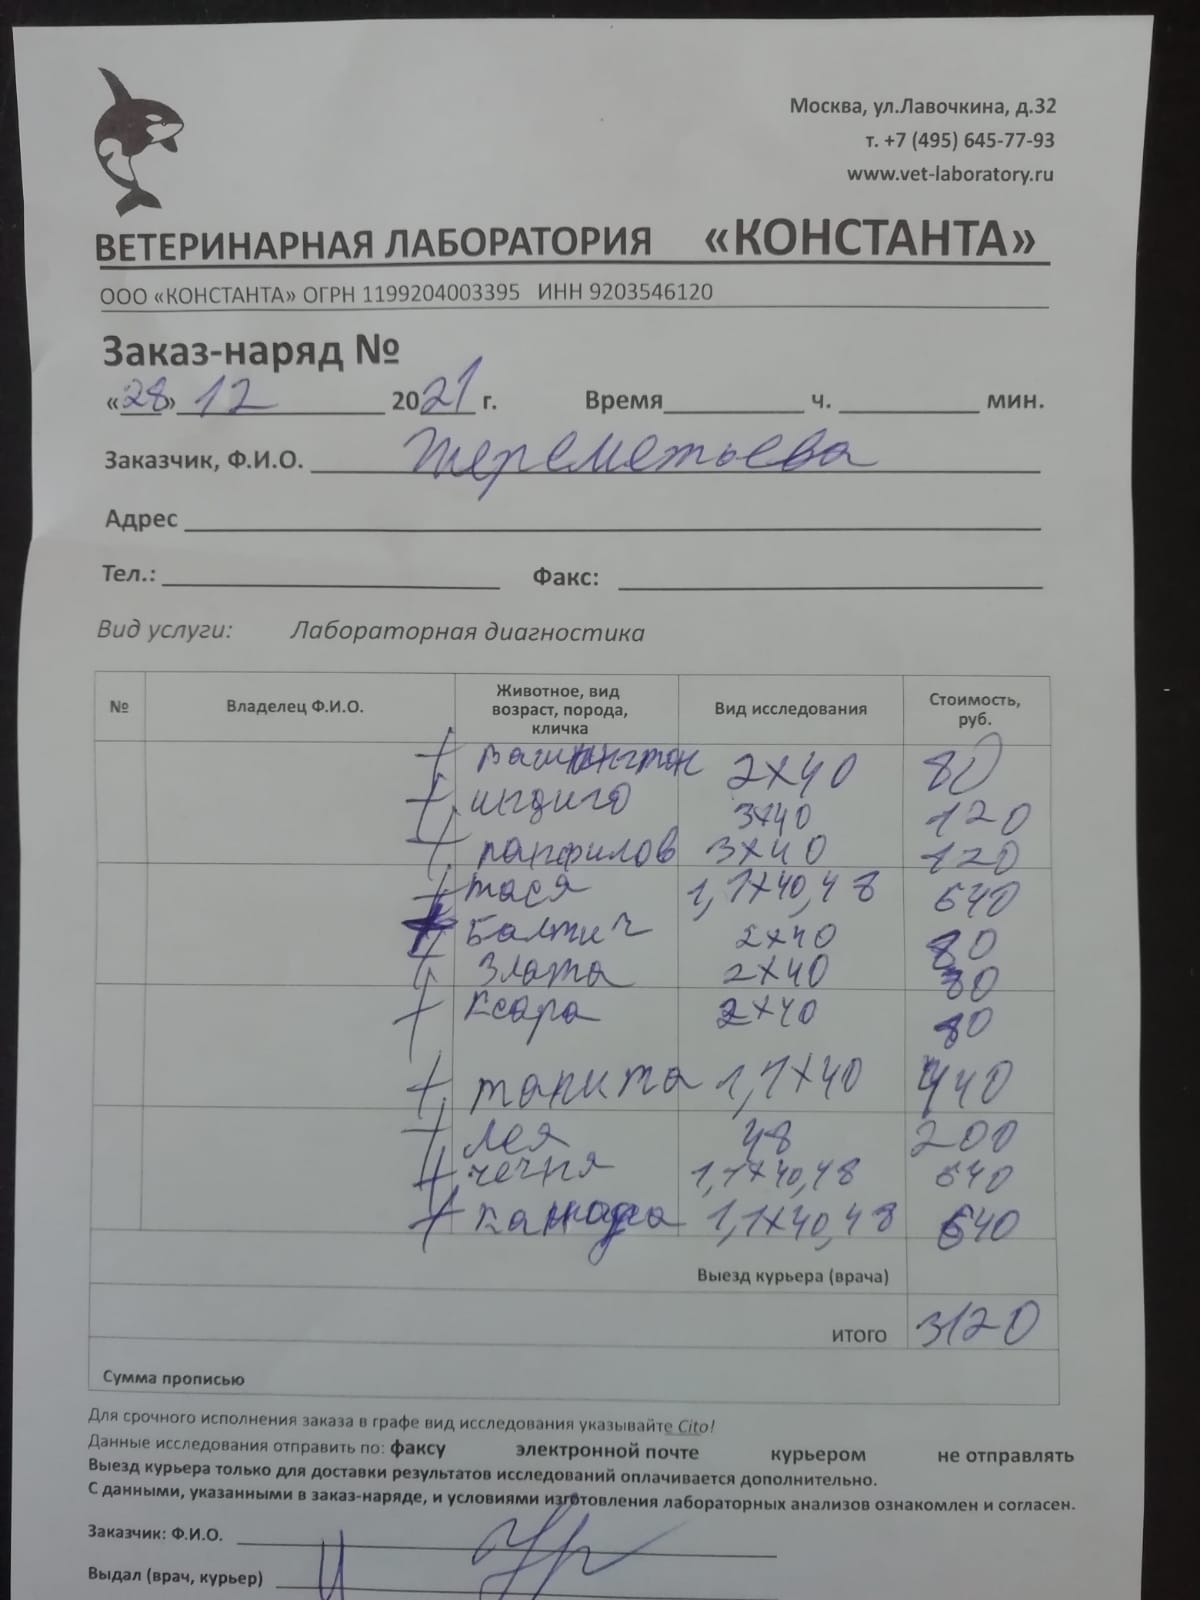 Москва, ул.Лавочкина, д.32
т. +7 (495) 645-77-93
www.vet-laboratory.ru
ВЕТЕРИНАРНАЯ ЛАБОРАТОРИЯ «КОНСТАНТА»
ООО «КОНСТАНТА» ОГРН 1199204003395 ИНН 9203546120
Заказ-наряд №
«28» 12 2021 г. Время ч. мин.
Заказчик, Ф.И.О. Шереметьева
Адрес
Тел.: Факс:
Вид услуги: Лабораторная диагностика
№ Владелец Ф.И.О. Животное, вид возраст, порода, кличка Вид исследования Стоимость, руб.
+ Вашингтон 2х40 80
+ индиго 3х40 120
+ панфилов 3х40 120
+ тася 1,1х40,48 640
+ Балтич 2х40 80
+ Злата 2х40 80
+ Ксара 2х40 80
+ танита 1,1х40 440
+ Лея 48 200
+ чечня 1,1х40,48 640
+ Канада 1,1х40,48 640
Выезд курьера (врача)
итого 3120
Сумма прописью
Для срочного исполнения заказа в графе вид исследования указывайте Cito!
Данные исследования отправить по: факсу электронной почте курьером не отправлять
Выезд курьера только для доставки результатов исследований оплачивается дополнительно.
С данными, указанными в заказ-наряде, и условиями изготовления лабораторных анализов ознакомлен и согласен.
Заказчик: Ф.И.О.
Выдал (врач, курьер)